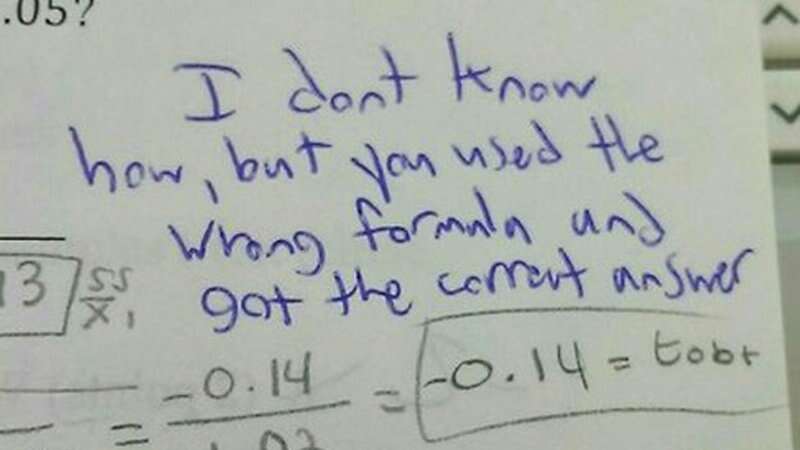 .05?
I dont know
how, but you used the
wrong formula and
got the correct answer
13 SS X₁
= -0.14 = -0.14 = tobt